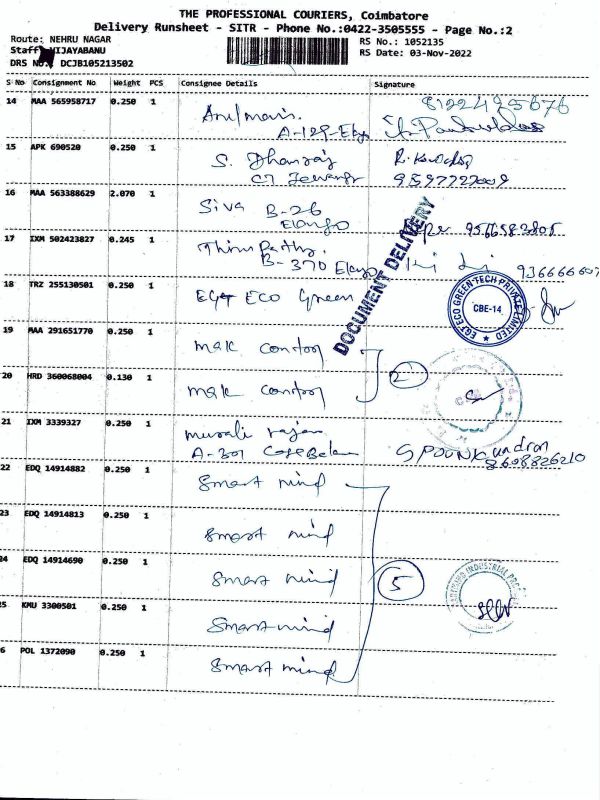 THE PROFESSIONAL COURIERS, Coimbatore
Delivery Runsheet - SITR - Phone No.:0422-3505555 - Page No.:2
Route: NEHRU NAGAR
RS No.: 1052135
Staff: VIJAYABANU
RS Date: 03-Nov-2022
DRS No.: DCJB105213502
S No Consignment No Weight PCS Consignee Details Signature
14 MAA 565958717 0.250 1
A-129-
15 APK 690520 0.250 1 S. Dhanraj
16 MAA 563388629 2.070 1 Siva B-26
Elango
17 IXM 502423827 0.245 1
B-370
DOCUMENT DELIVERY
18 TRZ 255130501 0.250 1 EGT ECO Green
EGT ECO GREEN TECH PRIVATE LIMITED
CBE-14
19 MAA 291651770 0.250 1 mak control
20 HRD 360068004 0.130 1 mak control
2
21 IXM 3339327 0.250 1 murali rajan
A-301
8608826210
22 EDQ 14914882 0.250 1 Smart mind
23 EDQ 14914813 0.250 1 Smart mind
24 EDQ 14914690 0.250 1 Smart mind
5
25 KMU 3300501 0.250 1 Smart mind
26 POL 1372090 0.250 1 Smart mind